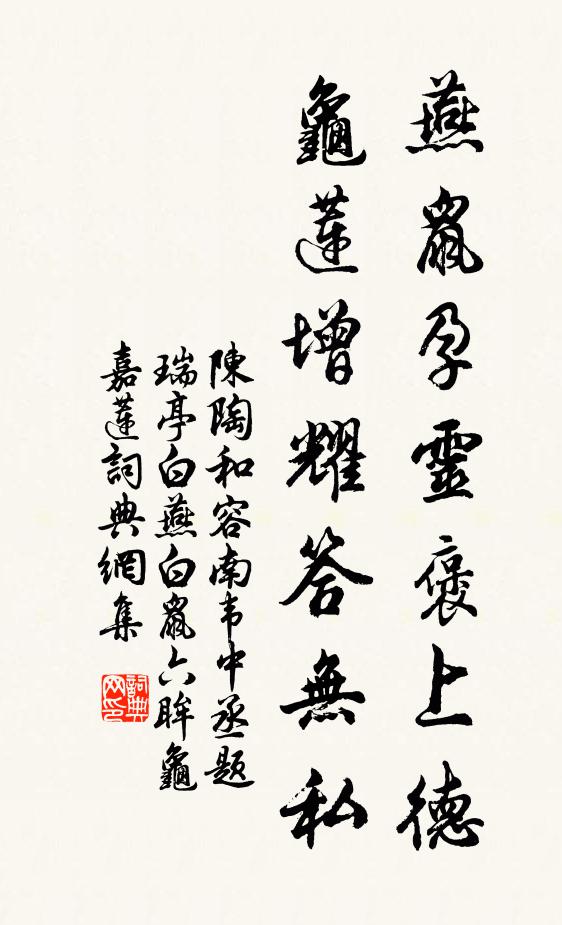 燕鼠孕靈褒上德
龜蓮增耀答無私
陳陶和容南韦中丞題
瑞亭白燕白鼠六眸龜
嘉蓮詞典網集
詞典
网印